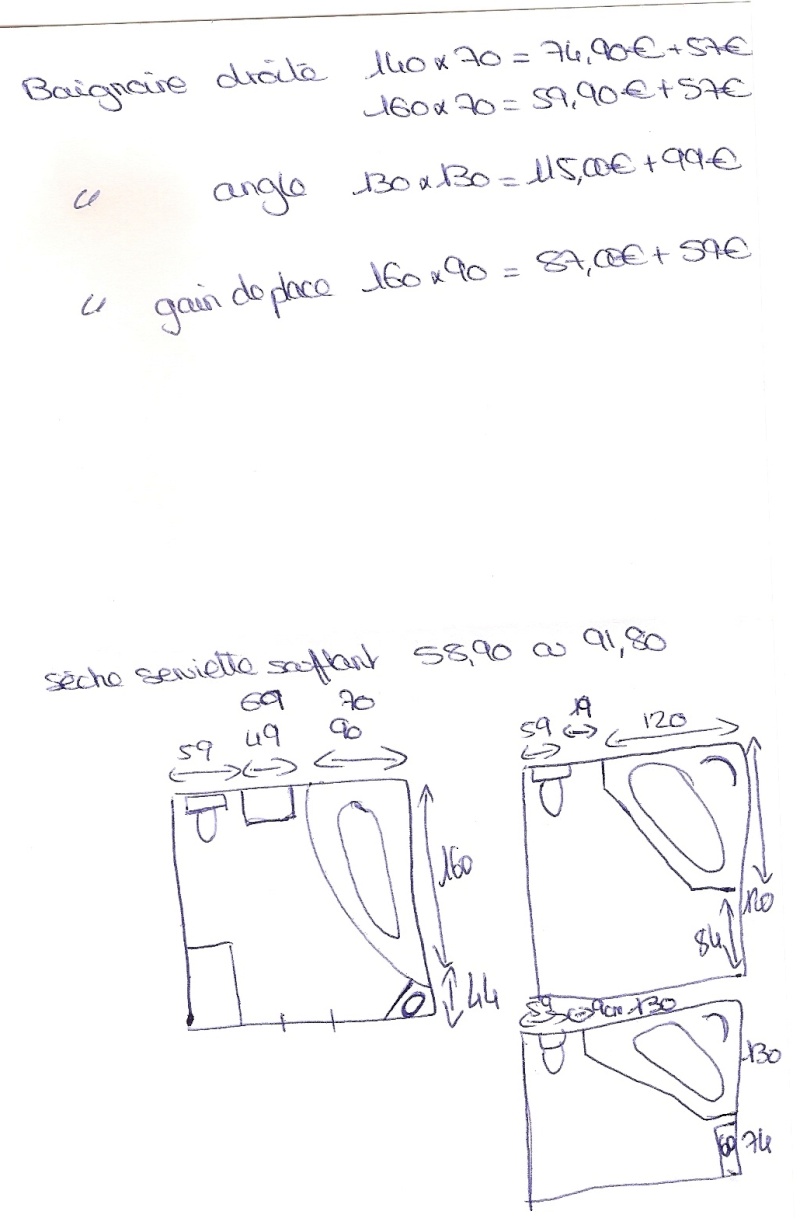 Baignoire droite 140 x 70 = 74,90€ + 57€
160 x 70 = 59,90€ + 57€
" angle 130 x 130 = 115,00€ + 99€
" gain de place 160 x 90 = 87,00€ + 59€
sèche serviette soufflant 58,90 ou 91,80
69 70
59 49 90
160
44
59 19 120
120
84
59 9cm 130
130
60 74